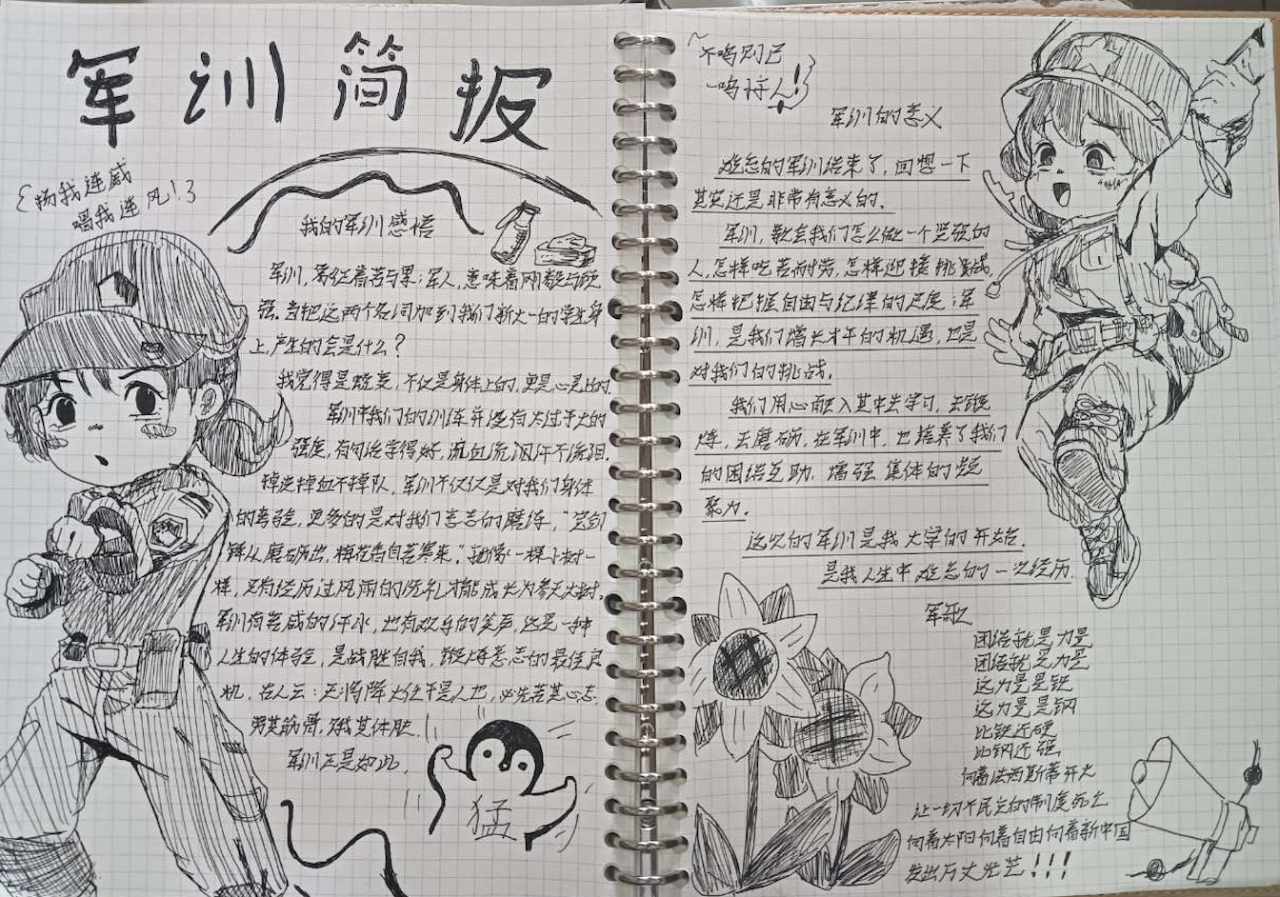 军训简报
扬我连威
唱我连风!
我的军训感悟
军训,象征着苦与累;军人,意味着刚毅与顽
强。当把这两个名词加到我们新大一的学生身
上,产生的会是什么?
我觉得是蜕变,不仅是身体上的,更是心灵上的。
军训中我们的训练并没有太过于大的
强度,有句话学得好,流血流汗不流泪,
掉皮掉血不掉队,军训不仅仅是对我们身体
的考验,更多的是对我们意志的磨练,“宝剑
锋从磨砺出,梅花香自苦寒来。”就像一棵小树一
样,只有经历过风雨的洗礼才能成长为参天大树。
军训有苦咸的汗水,也有欢乐的笑声,这是一种
人生的体验,是战胜自我,锻炼意志的最佳良
机。古人云:天将降大任于是人也,必先苦其心志,
劳其筋骨,饿其体肤。
军训正是如此。
猛
不鸣则已
一鸣惊人!
军训的意义
难忘的军训结束了,回想一下
其实还是非常有意义的。
军训,教会我们怎么做一个坚强的
人,怎样吃苦耐劳,怎样迎接挑战,
怎样把握自由与纪律的尺度;军
训,是我们增长才干的机遇,也是
对我们的挑战。
我们用心融入其中去学习,去锻
炼,去磨砺,在军训中,也培养了我们
的团结互助,增强集体的凝
聚力。
这次的军训是我大学的开始,
是我人生中难忘的一次经历
军歌
团结就是力量
团结就是力量
这力量是铁
这力量是钢
比铁还硬
比钢还强
向着法西斯蒂开火
让一切不民主的制度死亡
向着太阳向着自由向着新中国
发出万丈光芒!!!